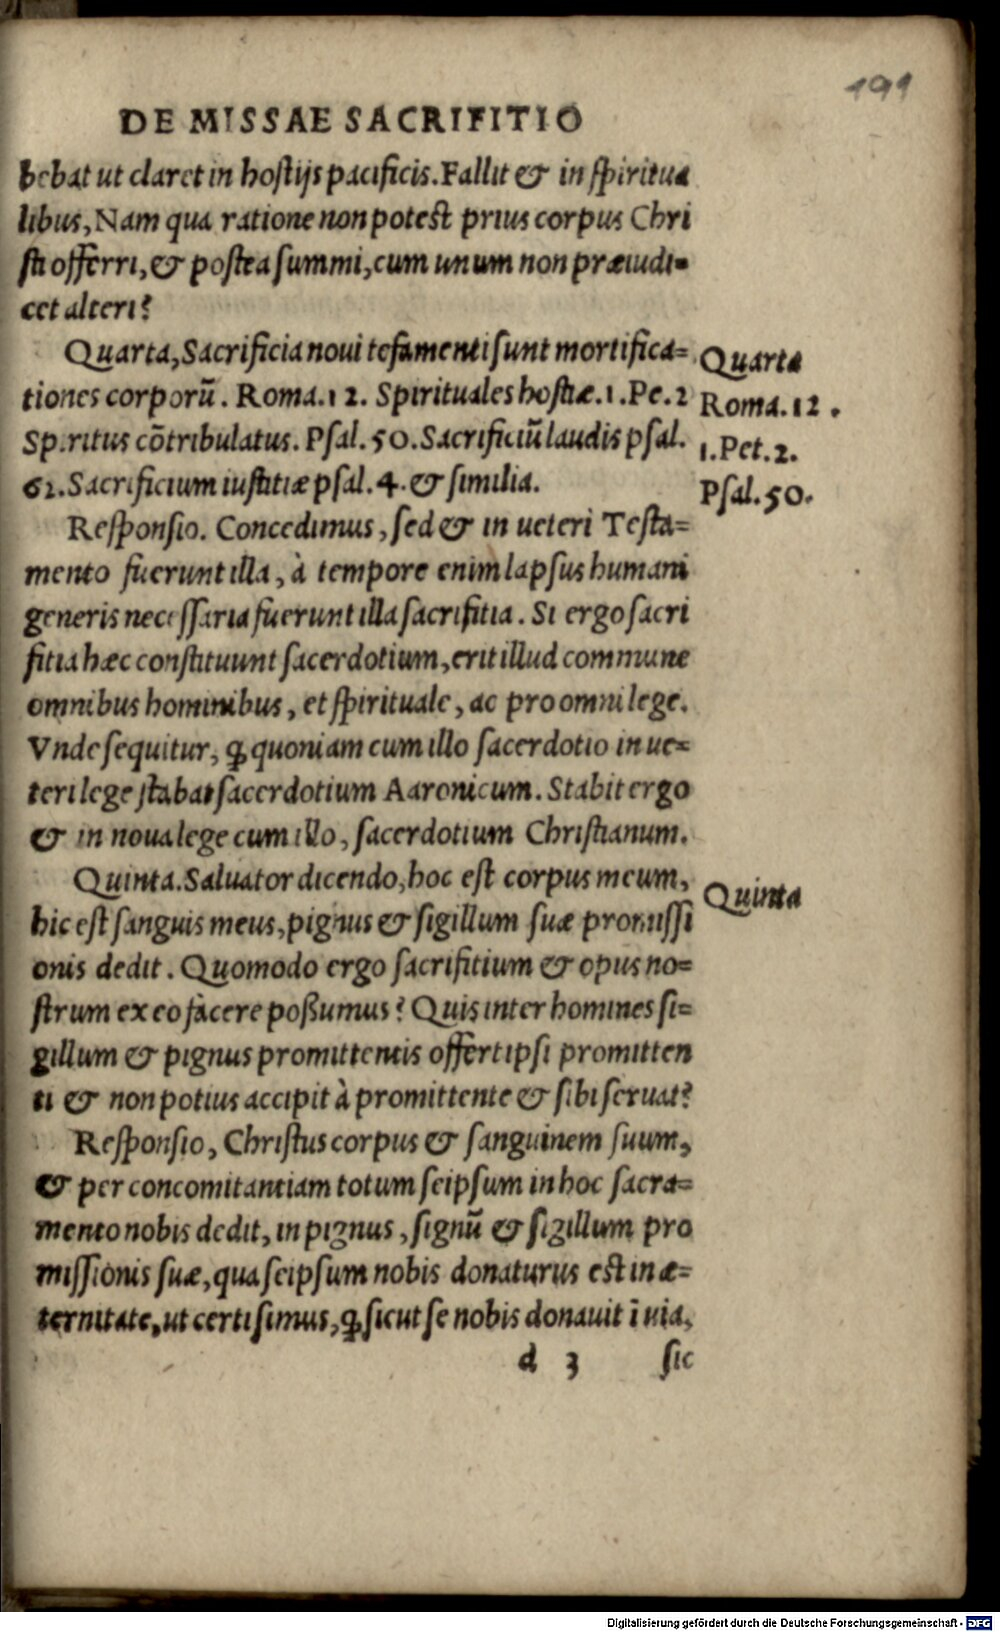 191
DE MISSAE SACRIFITIO
bebat ut claret in hostijs pacificis. Fallit & in spiritua
libus, Nam qua ratione non potest prius corpus Chri
sti offerri, & postea summi, cum unum non præiudi-
cet alteri?
Quarta, Sacrificia noui tesamenti sunt mortifica=
tiones corporū. Roma. 12. Spirituales hostiæ. 1. Pe. 2
Spiritus cōtribulatus. Psal. 50. Sacrificiū laudis psal.
62. Sacrificium iustitiæ psal. 4. & similia.
Responsio. Concedimus, sed & in ueteri Testa=
mento fuerunt illa, à tempore enim lapsus humani
generis necessaria fuerunt illa sacrifitia. Si ergo sacri
fitia hæc constituunt sacerdotium, erit illud commune
omnibus hominibus, et spirituale, ac pro omni lege.
Vnde sequitur, ꝙ quoniam cum illo sacerdotio in ue=
teri lege stabat sacerdotium Aaronicum. Stabit ergo
& in noua lege cum illo, sacerdotium Christianum.
Quinta. Saluator dicendo, hoc est corpus meum,
hic est sanguis meus, pignus & sigillum suæ promissi
onis dedit. Quomodo ergo sacrifitium & opus no=
strum ex eo facere poßumus? Quis inter homines si=
gillum & pignus promittentis offert ipsi promitten
ti & non potius accipit à promittente & sibi seruat?
Responsio, Christus corpus & sanguinem suum,
& per concomitantiam totum seipsum in hoc sacra=
mento nobis dedit, in pignus, signū & sigillum pro
missionis suæ, qua seipsum nobis donaturus est in æ=
ternitate, ut certi simus, ꝙ sicut se nobis donauit ī uia,
d 3 sic
Quarta
Roma. 12.
1. Pet. 2.
Psal. 50.
Quinta
Digitalisierung gefördert durch die Deutsche Forschungsgemeinschaft - DFG